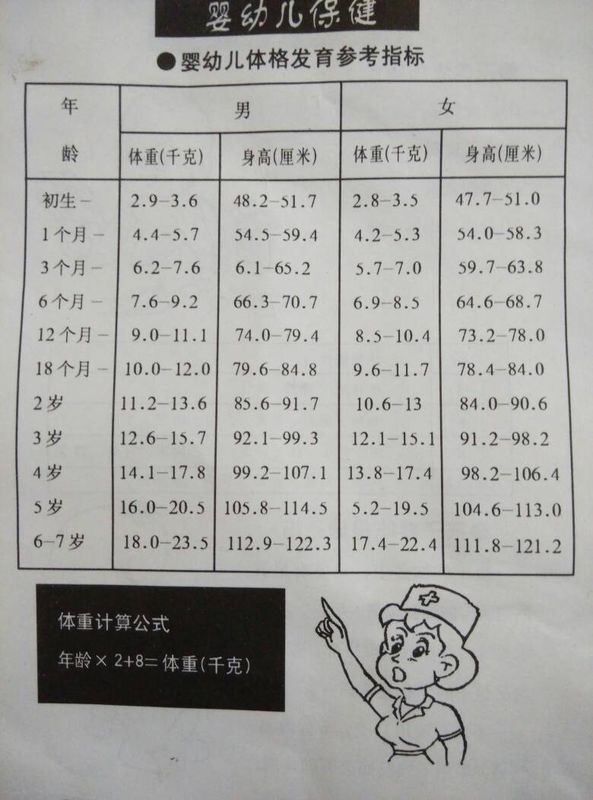 婴幼儿保健
●婴幼儿体格发育参考指标
年龄 男 女
体重(千克) 身高(厘米) 体重(千克) 身高(厘米)
初生— 2.9—3.6 48.2—51.7 2.8—3.5 47.7—51.0
1个月— 4.4—5.7 54.5—59.4 4.2—5.3 54.0—58.3
3个月— 6.2—7.6 6.1—65.2 5.7—7.0 59.7—63.8
6个月— 7.6—9.2 66.3—70.7 6.9—8.5 64.6—68.7
12个月— 9.0—11.1 74.0—79.4 8.5—10.4 73.2—78.0
18个月— 10.0—12.0 79.6—84.8 9.6—11.7 78.4—84.0
2岁 11.2—13.6 85.6—91.7 10.6—13 84.0—90.6
3岁 12.6—15.7 92.1—99.3 12.1—15.1 91.2—98.2
4岁 14.1—17.8 99.2—107.1 13.8—17.4 98.2—106.4
5岁 16.0—20.5 105.8—114.5 5.2—19.5 104.6—113.0
6—7岁 18.0—23.5 112.9—122.3 17.4—22.4 111.8—121.2
体重计算公式
年龄×2+8=体重(千克)